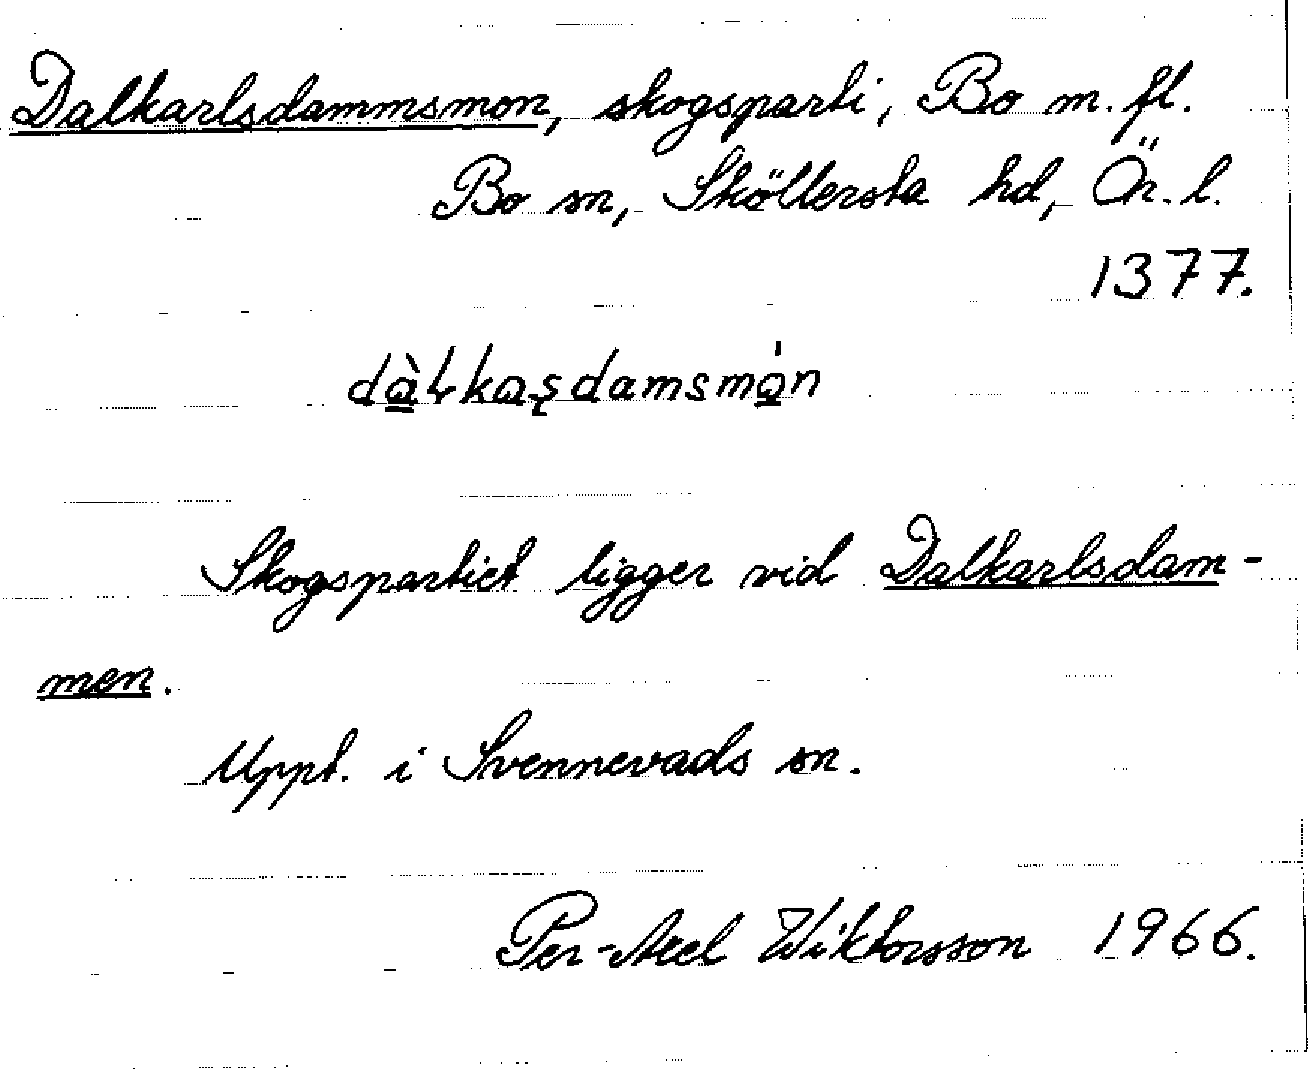 Dalkarlsdammsmon, skogsparti, Bo m. fl.
Bo sn, Sköllersta hd, Ör. l.
1377.
dàɫkaşdamsmo̱̍n
Skogspartiet ligger vid Dalkarlsdam-
men.
Uppt. i Svennevads sn.
Per-Axel Wiktorsson 1966.